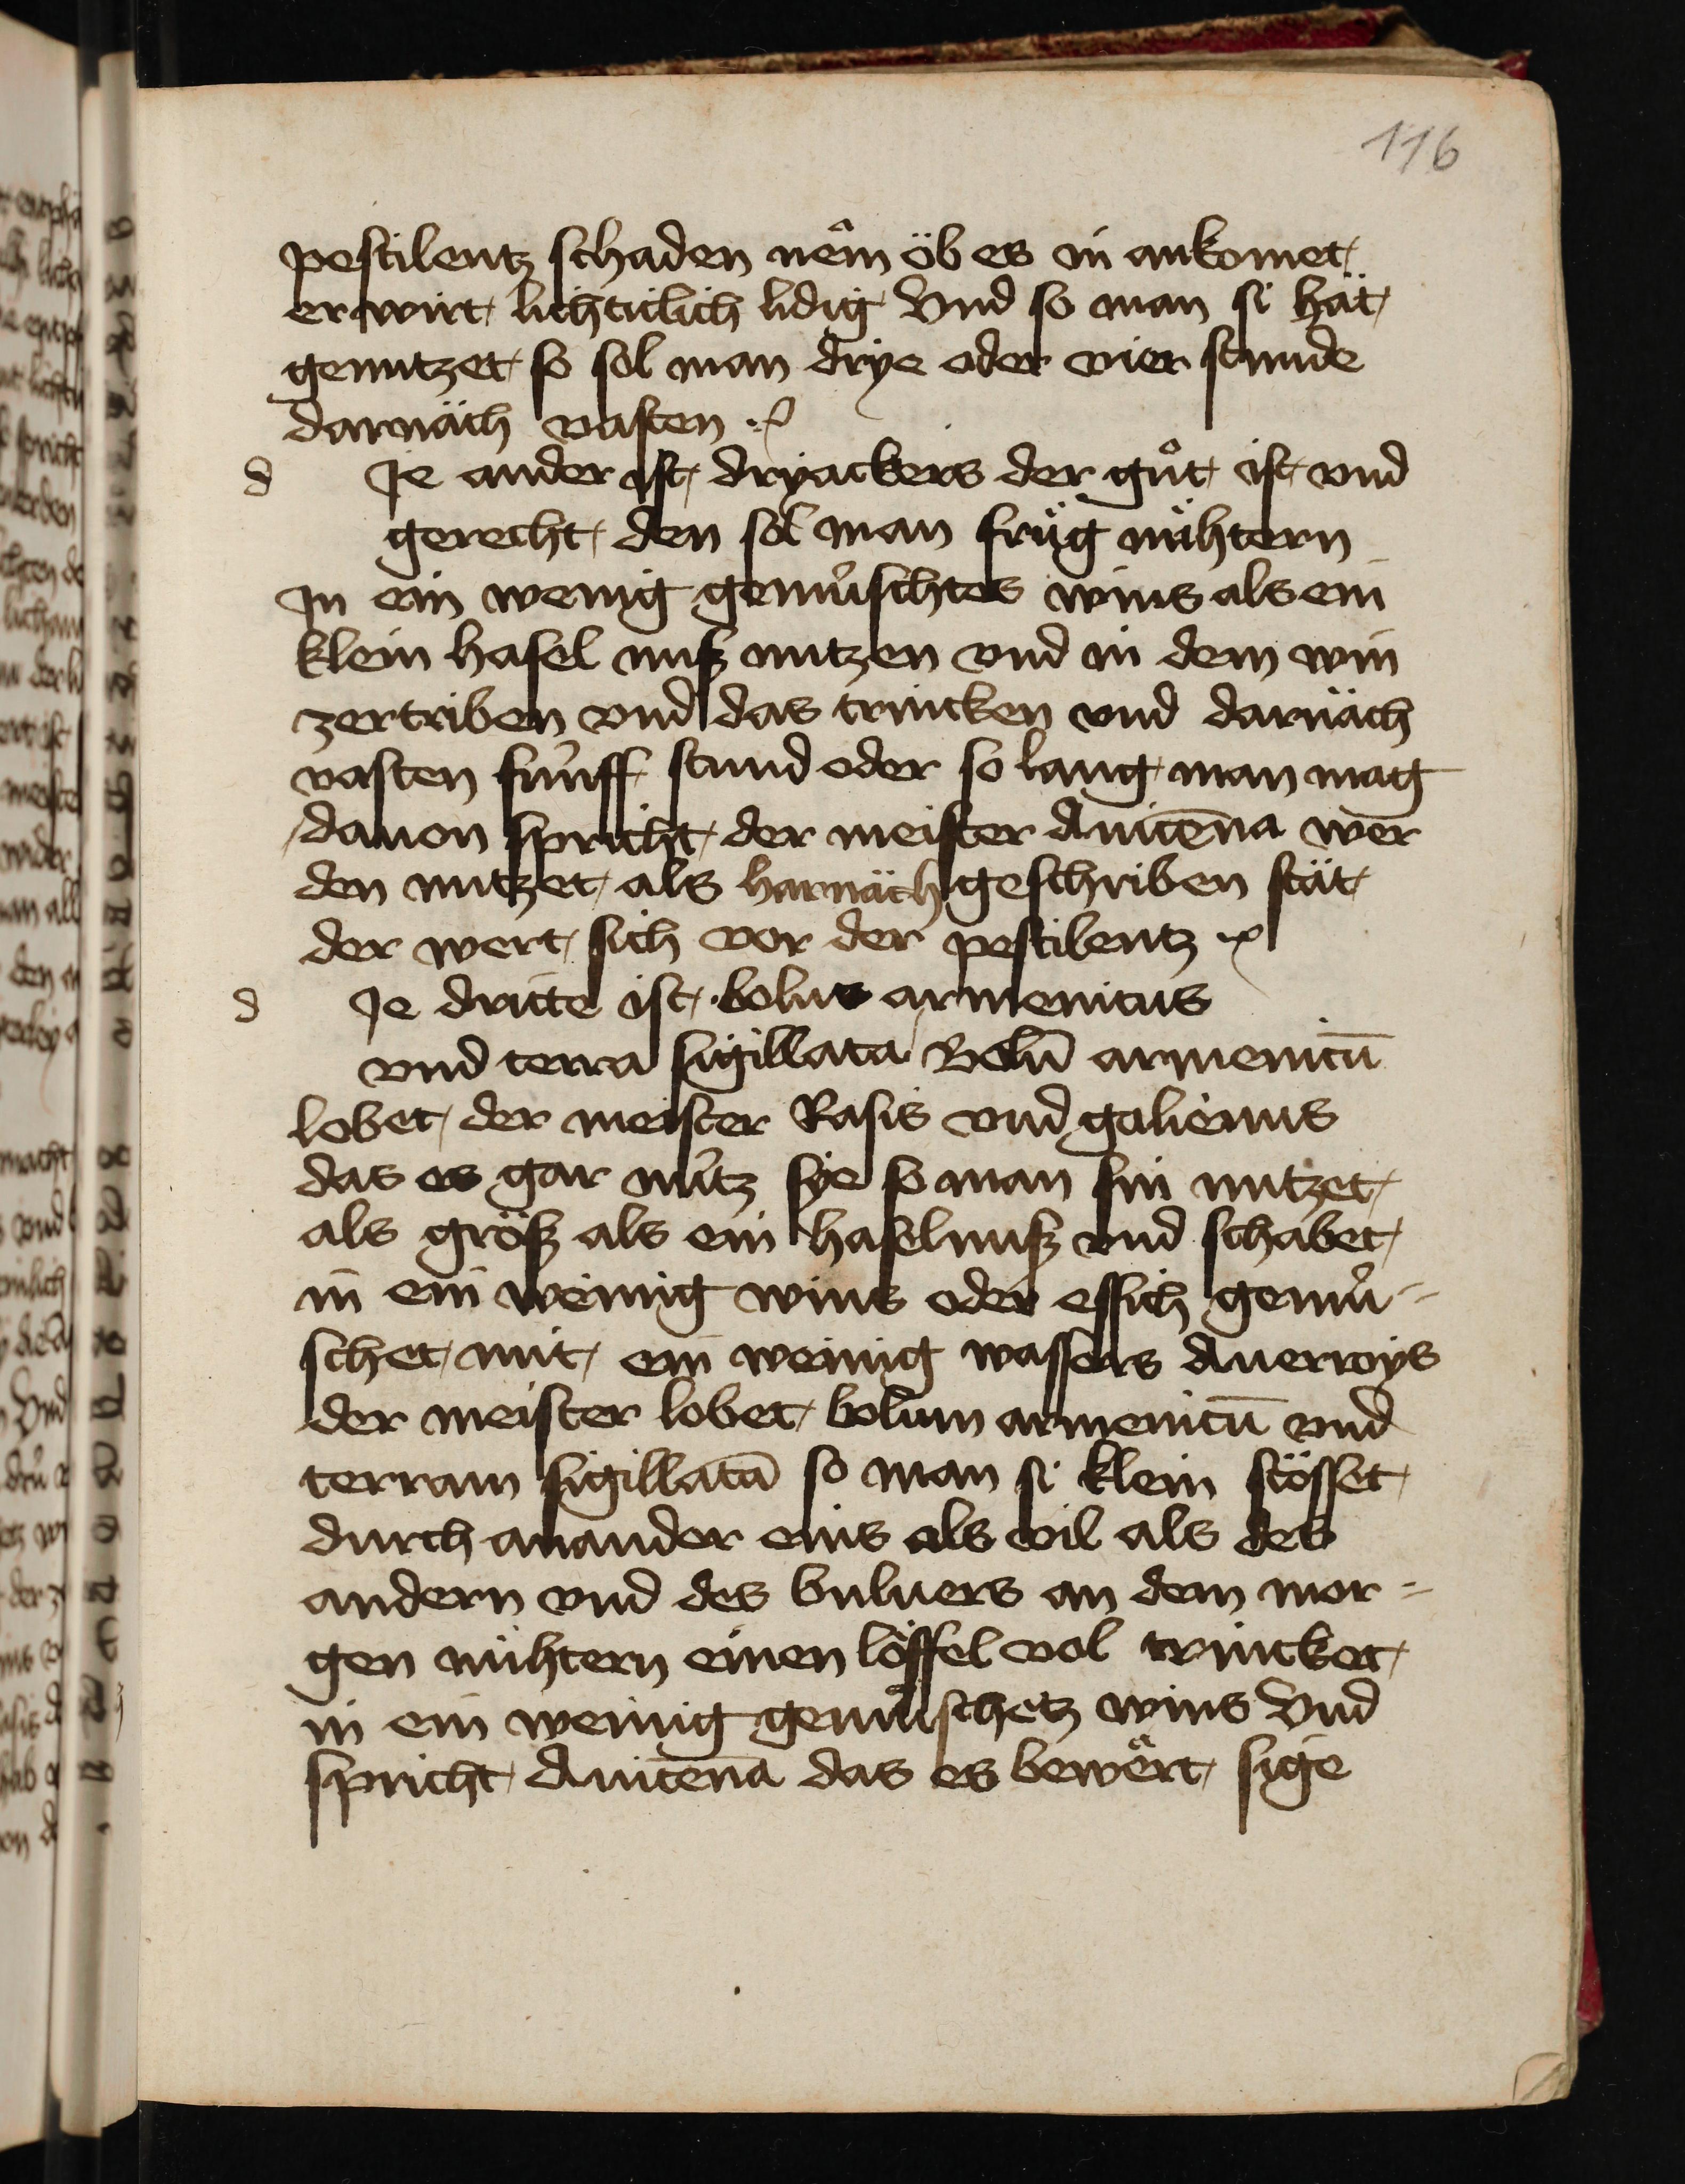 116
pestilentz schaden nêm öb es in ankomet
er wirt lichtiklich lidig Vnd so man si hät
genutzet so sol man drye oder vier stunde
darnäch vasten
d Je ander ist dryackers der gůt ist vnd
gerecht den sol man früg nühtern
Jn ein wenig gemüschtes wins als ein
klein hasel nuß nutzen vnd in dem win
zertriben vnd das trincken vnd darnäch
vasten fünff stund oder so lang man mag
dauon spricht der meister Auicēna wer
den nutzet als harnäch geschriben stät
der wert sich vor der pestilentz
d Je dritte ist bolus armenicus
vnd terra sigillata Bolū armenicū
lobet der meister Rasis vnd galienus
das es gar nütz sye so man sin nutzet
als größ als ein haselnuß vnd schabet
in ein weinig wins oder essich gemü-
schet mit ein weinig wassers Auerroys
der meister lobet bolum armenicū vnd
terram sigillatā so man si klein stösset
durch anander eins als vil als des
andern vnd des buluers an dem mor-
gen nühtern einen löffel vol trincket
in ein weinig gemüschetz wins Vnd
spricht Auicēna das es bewërt sige